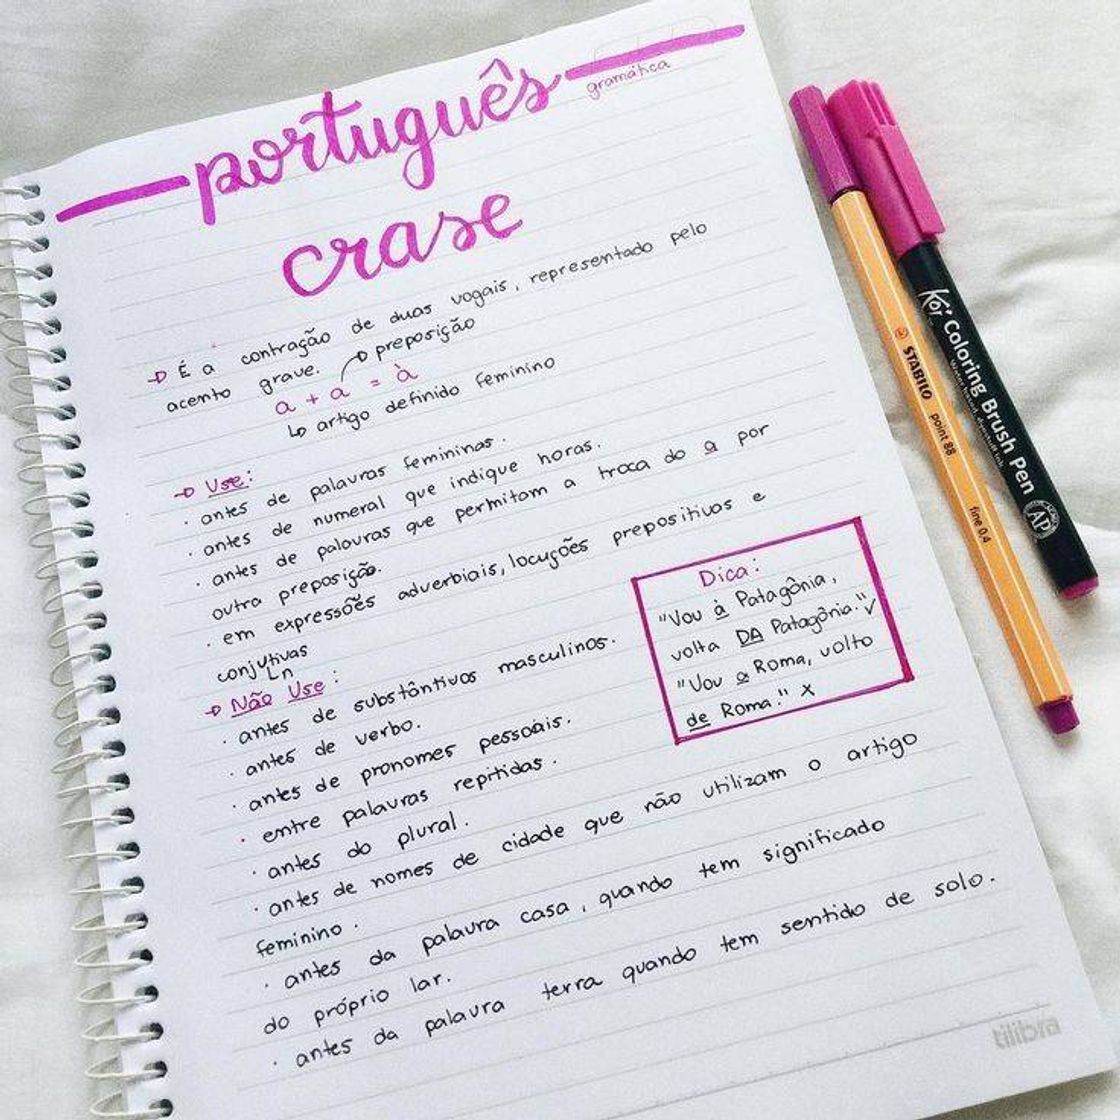 português
gramática
crase
→ É a contração de duas vogais, representado pelo
acento grave.
preposição
a + a = à
↳ artigo definido feminino
→ Use:
· antes de palavras femininas.
· antes de numeral que indique horas.
· antes de palavras que permitam a troca do a por
outra preposição.
· em expressões adverbiais, locuções prepositivas e
conjutivas
n
Dica:
"Vou à Patagônia,
volta DA Patagônia." ✓
"Vou a Roma, volto
de Roma." x
→ Não Use:
· antes de substântivos masculinos.
· antes de verbo.
· antes de pronomes pessoais.
· entre palavras reptidas.
· antes do plural.
· antes de nomes de cidade que não utilizam o artigo
feminino.
· antes da palavra casa, quando tem significado
do próprio lar.
· antes da palavra terra quando tem sentido de solo.
tilibra
STABILO point 88 fine 0.4
Koi Coloring Brush Pen
AP